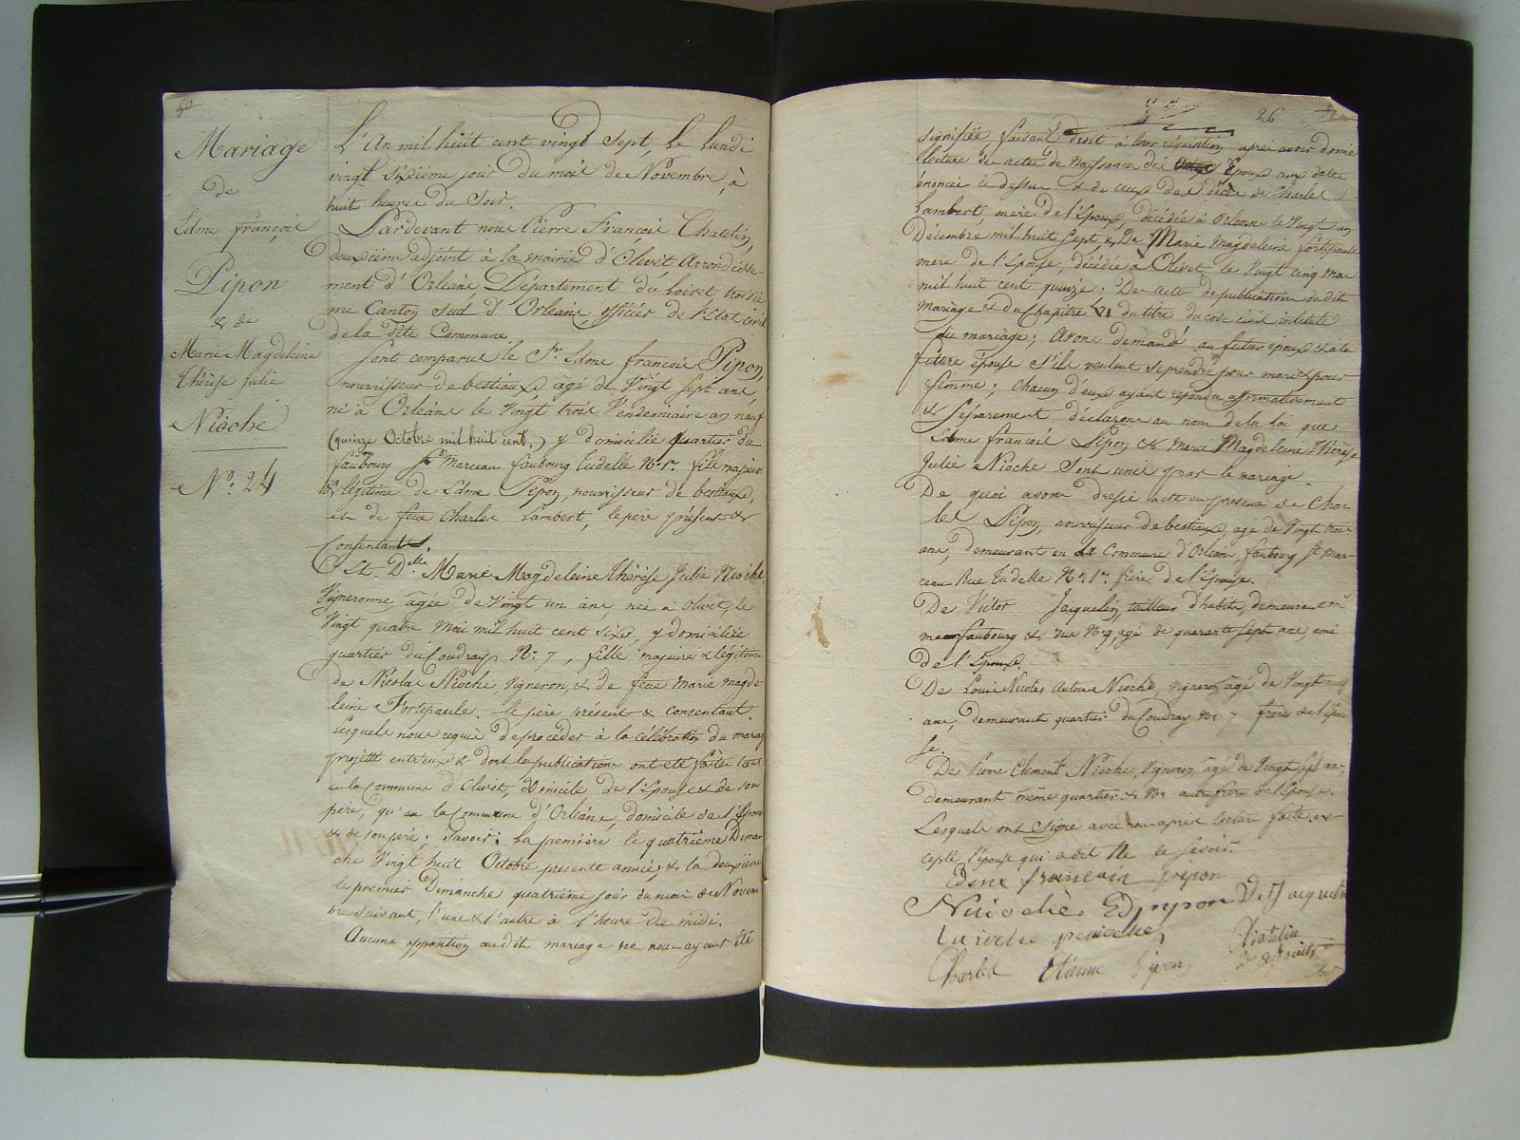 Mariage
de
Edme françois
Pipon
& de
Marie Magdeleine
Thérèse Julie
Nioche
N.º 24
L'An mil huit cent vingt sept, le lundi
vingt sixième jour du mois de Novembre, à
huit heures du Soir.
Pardevant nous Pierre François Chatelin,
deuxième adjoint à la mairie d'Olivet Arrondisse-
ment d'Orléans Département du loiret, troisiè
me Canton sud d'Orléans, officier de l'Etat civil
de la dite Commune.
Sont comparus le Sr. Edme françois Pipon,
nourrisseur de bestiaux, agé de Vingt sept ans,
né à Orléans le Vingt trois Vendemiaire an neuf
(quinze Octobre mil huit cent,) y domicilié quartier du
faubourg St Marceau faubourg Tudelle N.º 1er. fils majeur
& légitime de Edme Pipon, nourrisseur de bestiaux,
et de feue Charles Lambert, le père présent &
Consentant.
Et Dlle. Marie Magdeleine Thérèse Julie Nioche
Vigneronne agée de Vingt un ans, née à Olivet, le
Vingt quatre Mai mil huit cent six, y domiciliée
quartier du Coudray N.º 7, fille majeure & légitime
de Nicolas Nioche, Vigneron, & de feue Marie Magde
leine Fortepaule. le père présent & consentant.
Lesquels nous requis de procéder à la célébration du mariage
projetté entr'eux & dont les publications ont été faites tant
en la Commune d'Olivet, domicile de l'Epouse & de son
père, qu'en la Commune d'Orléans, domicile de l'Epoux
& de son père; Savoir: la première le quatrième Diman
che Vingt huit Octobre présente année, & la deuxième
le premier Dimanche quatrième jour du mois de Novem
bre suivant, l'une & l'autre à l'heure de midi.
Aucune opposition au dit mariage ne nous ayant été
26
signifiée, faisant droit à leur réquisition, après avoir donné
lecture des actes de Naissance des Epoux aux dates
énoncées ci dessus & de ceux de décès de Charles
Lambert, mère de l'Epoux, décédée à Orléans le Vingt un
Décembre mil huit sept, & De Marie Magdeleine Fortepaule
mère de l'Epouse, décédée à Olivet le Vingt cinq Mai
mil huit cent quinze; Des actes de publications du dit
mariage & du Chapitre VI du titre du code civil intitulé
du mariage; Avons demandé au futur époux & à la
future épouse s'ils veulent se prendre pour mari & pour
femme; Chacun d'eux ayant répondu affirmativement
& séparément, déclarons au nom de la loi que
Edme françois Pipon & Marie Magdeleine Thérèse
Julie Nioche sont unis par le mariage.
De quoi avons dressé acte en présence de Char
les Pipon, nourrisseur de bestiaux, agé de Vingt
ans, demeurant en la Commune d'Orléans, faubourg St Mar
ceau Rue Tudelle N.º 1er. frère de l'Epoux.
De Victor Jacquelin, tailleur d'habits, demeurant
même faubourg & rue N.º 9, agé de quarante sept ans, ami
de l'Epoux.
De Louis Nicolas Antoine Nioche, vigneron, agé de Vingt neuf
ans, demeurant quartier du Coudray N.º 7 frère de l'Epou
se.
De Pierre Clement Nioche, Vigneron, agé de Vingt sept ans,
demeurant même quartier & N.º autre frère de l'Epouse.
Lesquels ont signé avec nous après lecture faite, ex
cepté l'épouse qui a dit ne le savoir.
Edme francois pipon
Nicioche Ed, pipon D. V. Jacquelin
Charles Etienne Pipon
Chatelin